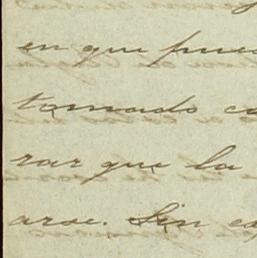 en que pued
tomado co
rar que la
arse. Sin es